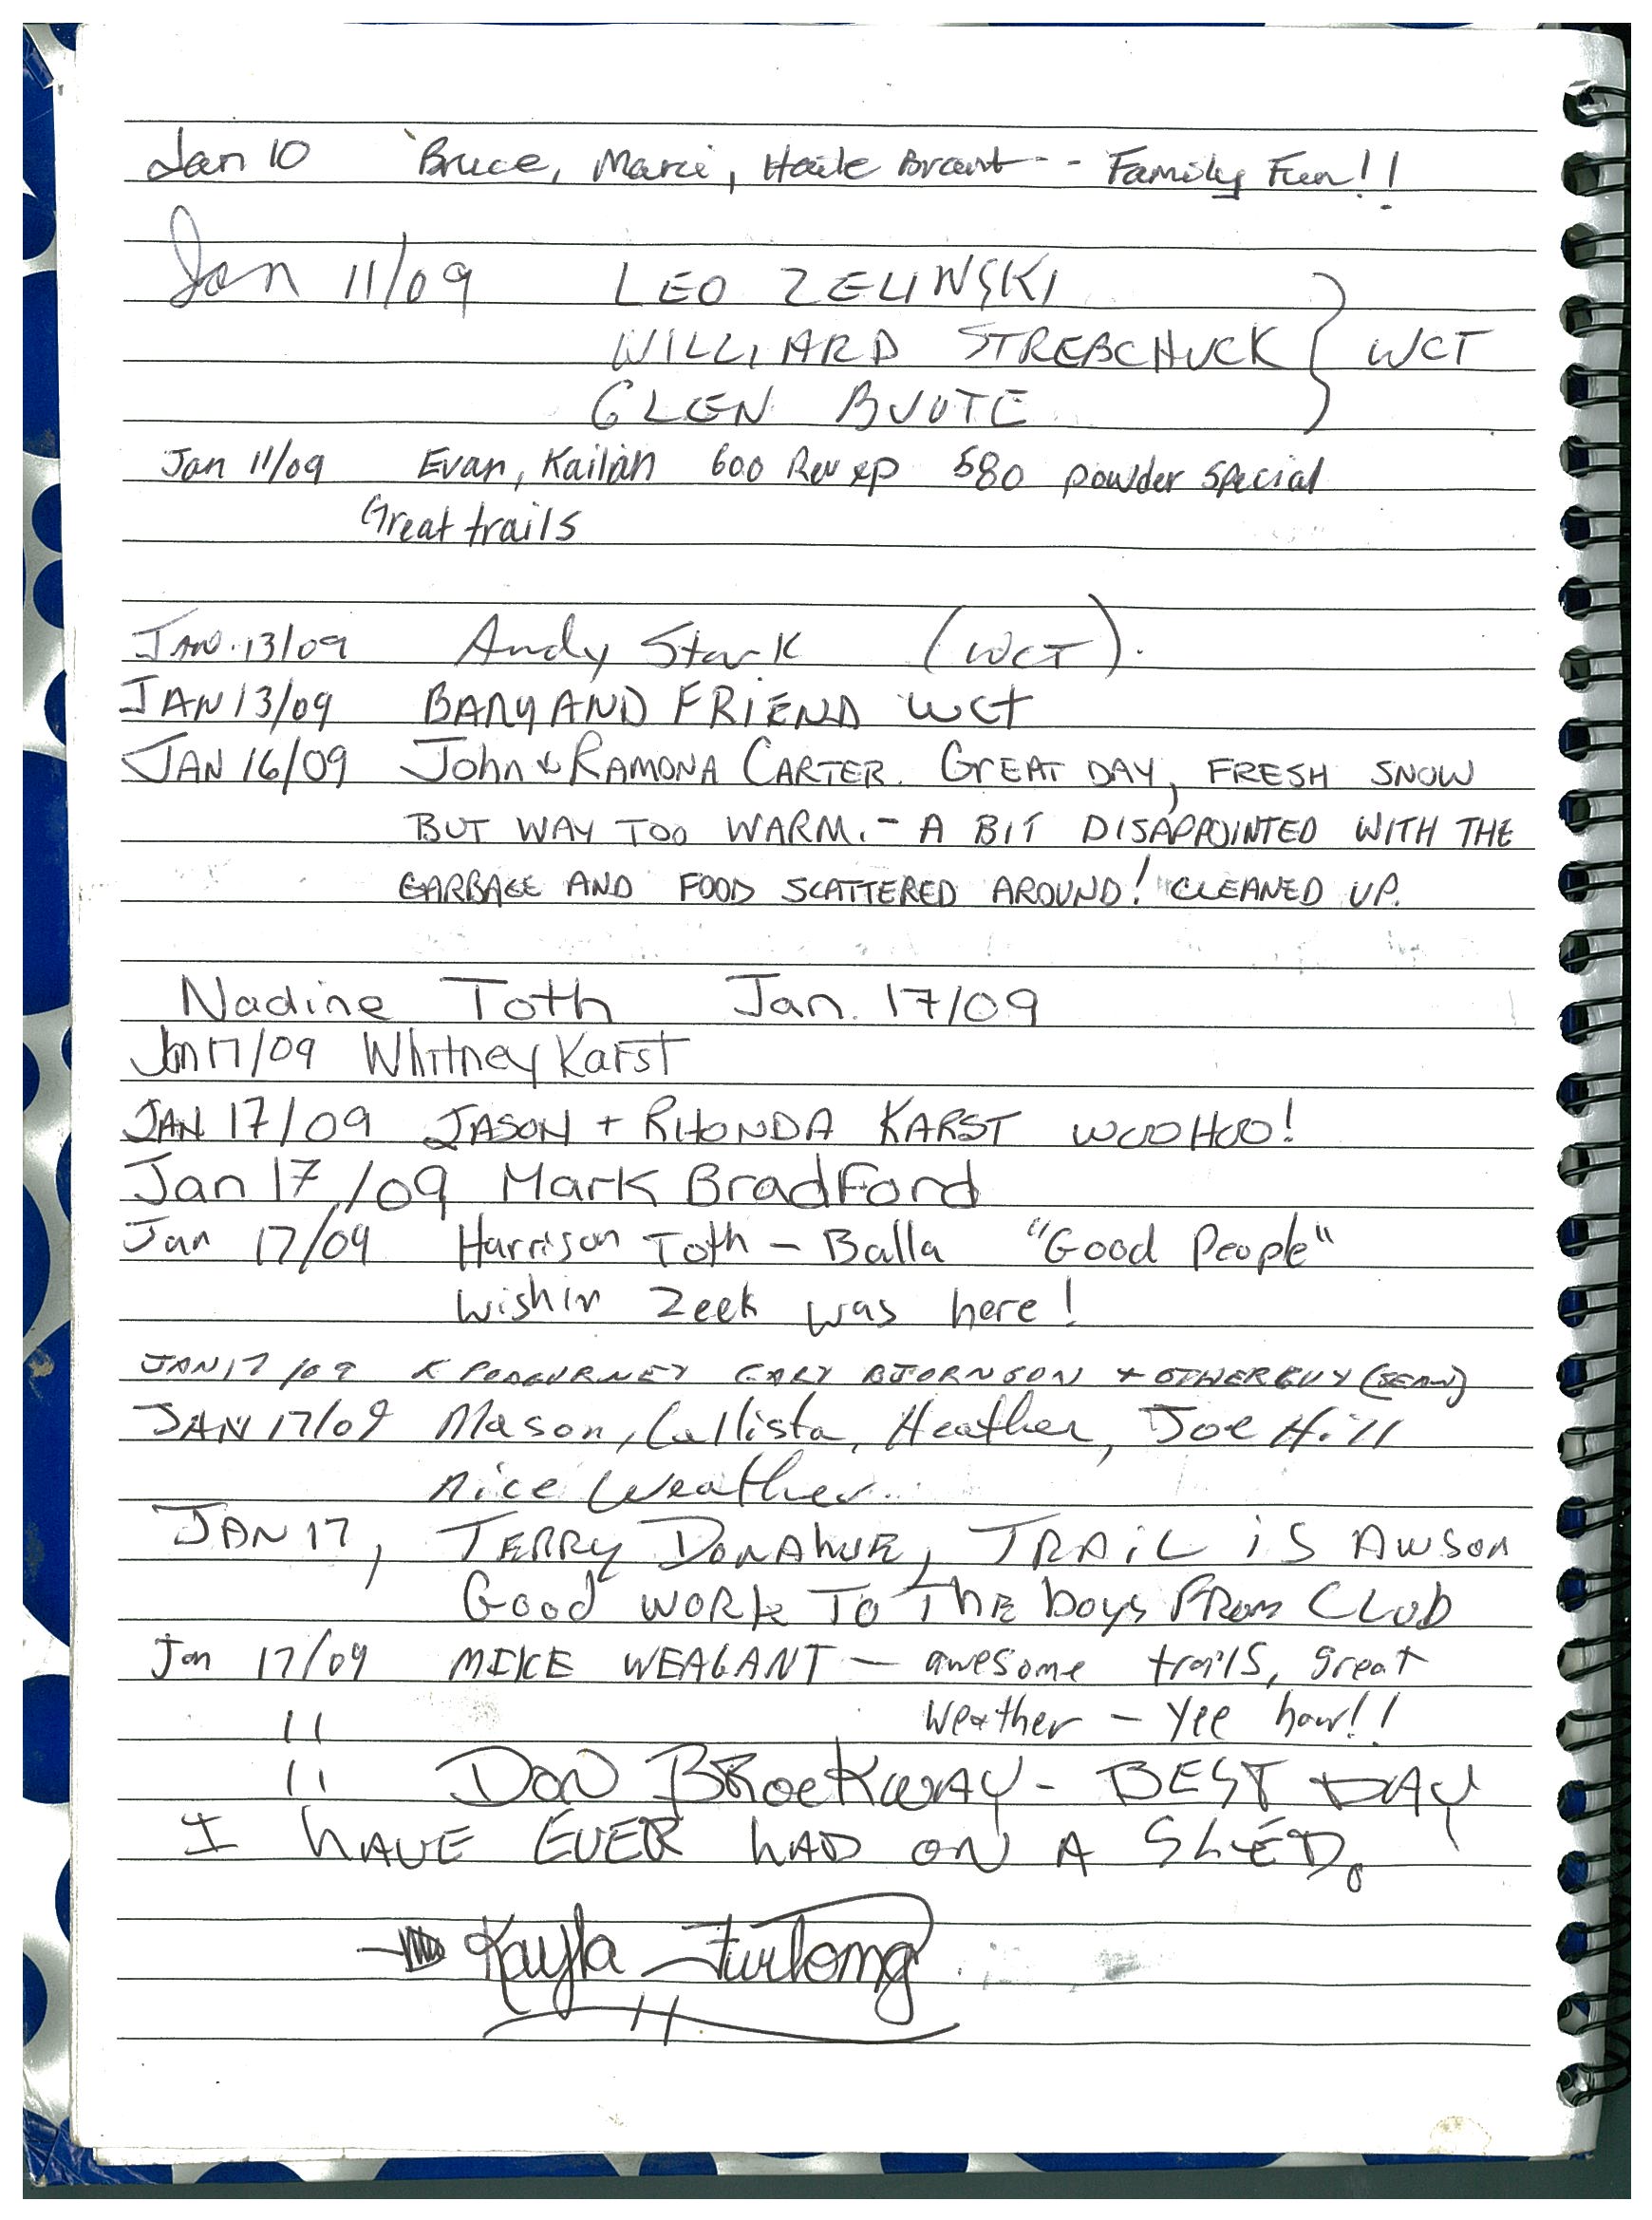 Jan 10 Bruce, Marci, Haile Brant -- Family Fun!!
Jan 11/09 LEO ZELINSKI
WILLIARD STREBCHUCK } WCT
GLEN BUOTE
Jan 11/09 Evan, Kailan 600 Rev xp 580 powder special
Great trails
JAN.13/09 Andy Stark (WCT).
JAN 13/09 BARY AND FRIEND WCT
JAN 16/09 John & RAMONA CARTER. GREAT DAY, FRESH SNOW
BUT WAY TOO WARM. - A BIT DISAPPOINTED WITH THE
GARBAGE AND FOOD SCATTERED AROUND! CLEANED UP.
Nadine Toth Jan. 17/09
Jan 17/09 Whitney Karst
JAN 17/09 JASON + RHONDA KARST WOOHOO!
Jan 17/09 Mark BradFord
Jan 17/09 Harrison Toth - Balla "Good People"
Wishin Zeek was here!
JAN 17/09 K PODGURNEY GARY BJORNSON + OTHER GUY (SEAN)
JAN 17/09 Mason, Callista, Heather, Joe Hill
nice Weather..
JAN 17, TERRY DONAHUE, TRAIL iS AWSOM
Good WORK TO THE boys FROM CLUB
Jan 17/09 MIKE WEAGANT - awesome trails, great
11 Weather - Yee haw!!
11 DON BRocKWAY - BEST DAY
I HAVE EVER HAD ON A SLED.
Kayla Furlong